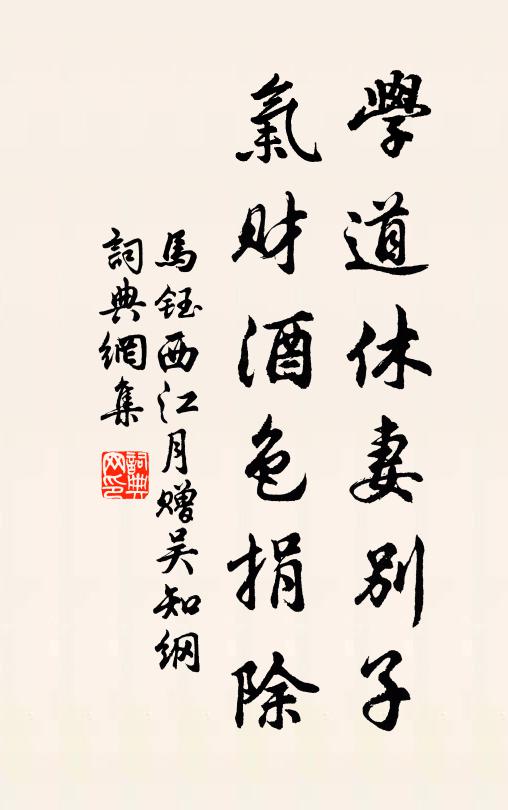 學道休妻別子
氣財酒色捐除
馬鈺西江月贈吴知綱
詞典網集
詞典網印